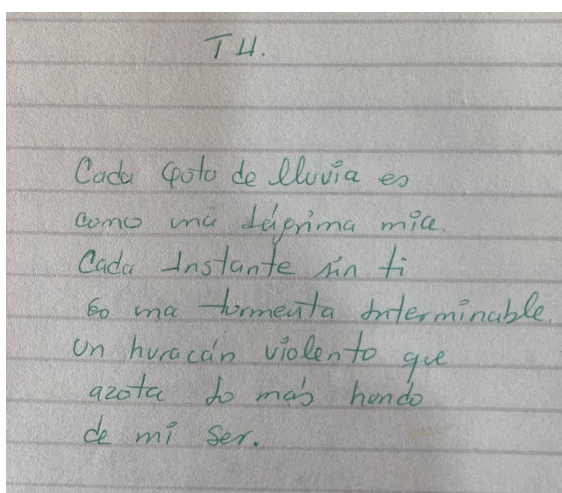 TU.
Cada gota de lluvia es
como una lágrima mía.
Cada Instante sin ti
es una tormenta interminable.
un huracán violento que
azota lo más hondo
de mi ser.